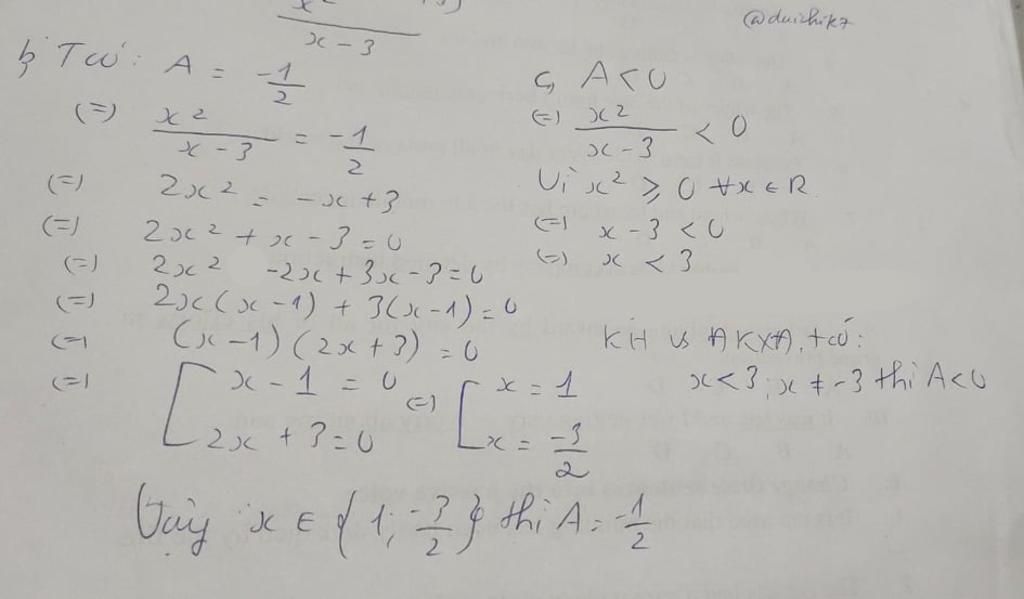 @duichik7
x - 3
b, T có: A = -1/2
(=) x²/(x - 3) = -1/2
(=) 2x² = -x + 3
(=) 2x² + x - 3 = 0
(=) 2x² -2x + 3x - 3 = 0
(=) 2x(x - 1) + 3(x - 1) = 0
(=) (x - 1)(2x + 3) = 0
(=) [ x - 1 = 0 (=) [ x = 1
2x + 3 = 0 x = -3/2
Vậy x ∈ { 1; -3/2 } thì A = -1/2
c, A < 0
(=) x²/(x - 3) < 0
Vì x² ⩾ 0 ∀x ∈ R
(=) x - 3 < 0
(=) x < 3
KH vs ĐKXĐ, t có:
x < 3; x ≠ -3 thì A < 0